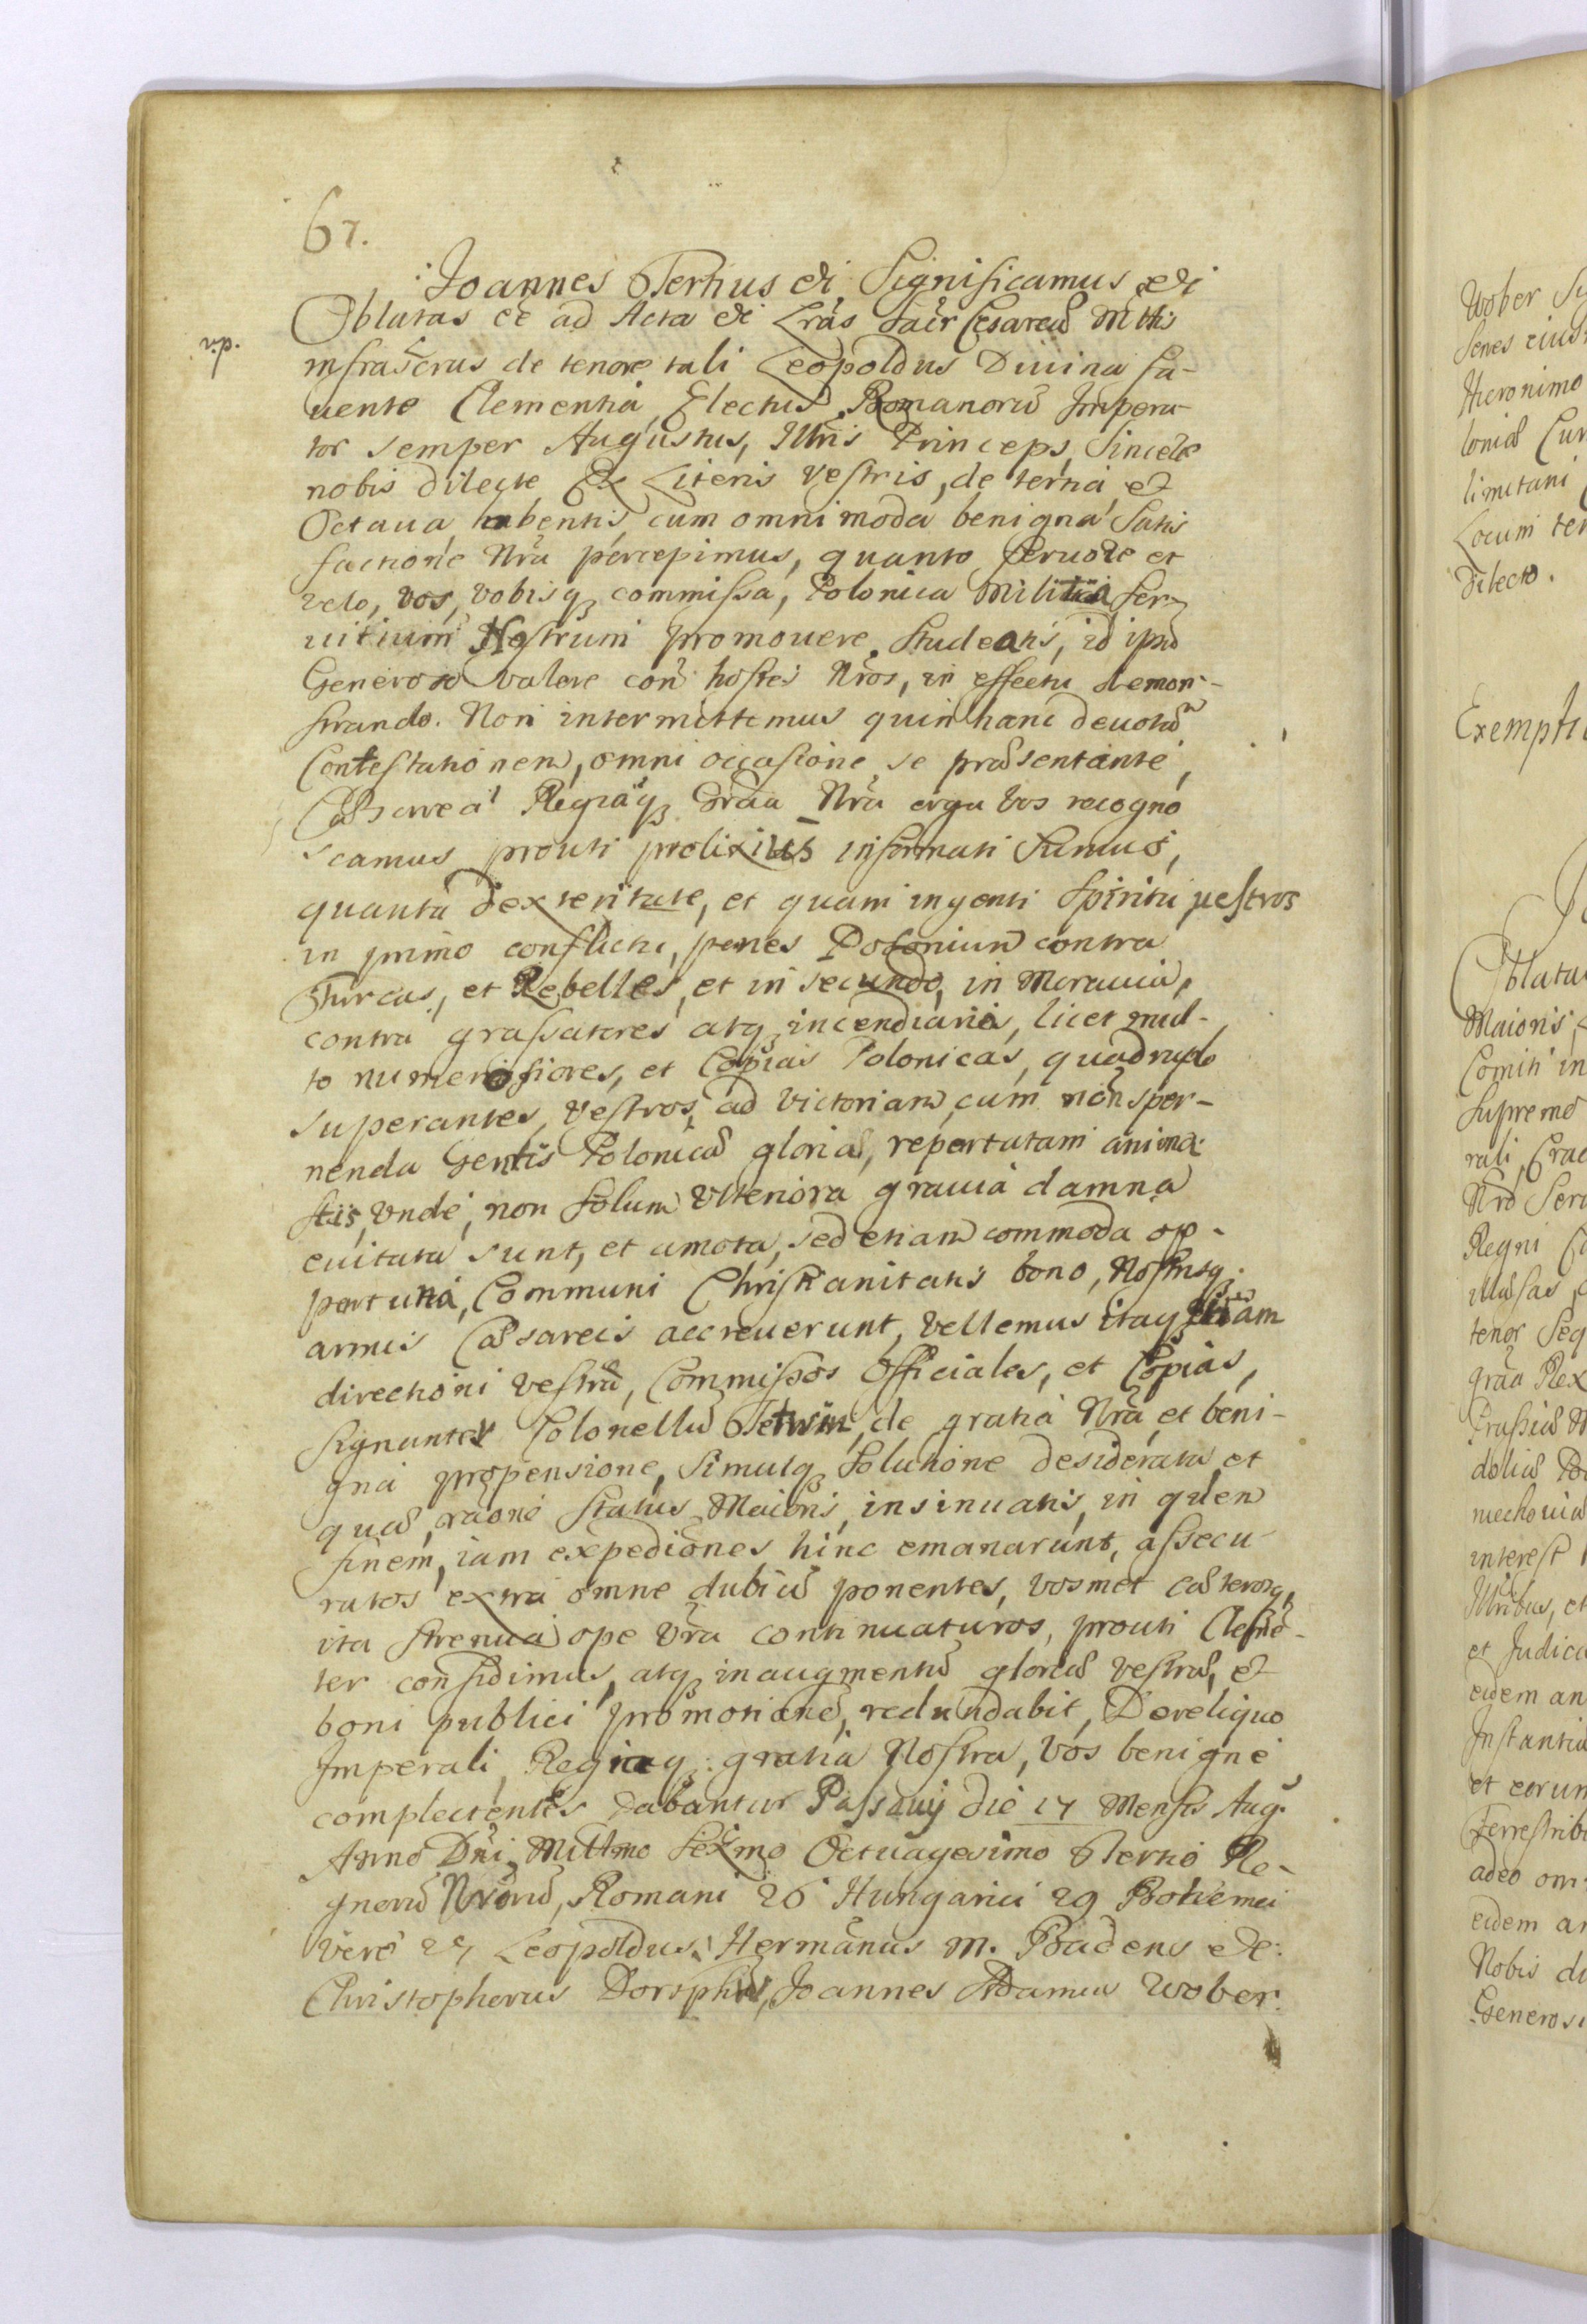 67.
Joannes Tertius etc Significamus etc
Oblatas eẽ ad Acta etc Lrãs Sacr Cesareæ Mttis
dir.
infrascrus de tenore tali Leopoldus Divina fa-
uente Clementia, Electus Romanorũ Impera-
tor semper Augustus, Illris Princeps, Sincere
nobis dilecte Ex Literis vestris, de tertia et
Octaua, habentis, cum omnimoda benigna Satis
factione Nrã percepimus, quanto feruore et
zelo, vos, vobisq commissa, Polonica Militia Ser-
uitium Nostrum promouere Studeatis, id ipsũ
Generoso valore con hostes Nros, in effectu demon-
strando. Non intermittemus quin hanc deuotã
Contestationem, omni occasione se præsentante,
Cæsarea Regiaq Grãa Nrã erga vos recogno
scamus prouti prolixius informati Sumus,
quanta dexteritate, et quam ingenti Spiritu vestros
in primo conflictu, penes Posonium contra
Turcas, et Rebelles, et in secundo, in Morauia,
contra grassatores atq incendiarios, licet mul-
to numerosiores, et Copias Polonicas, quadruplo
superantes, vestros, ad victoriam, cum non sper-
nenda Gentis Polonicæ gloria, reportatam anima-
stis, vnde, non solum vlteriora grauia damna
euitata sunt, et amota, sed etiam commoda op-
portuna, Communi Christianitatis bono, Nostrisq
armis Cæsareis accreuerunt, vellemus itaq etiam
directioni vestræ, Commissos Officiales, et Copias,
signanter Colonellũ Tetwin, de gratia Nrã, et beni-
gna propensione, Simulq Solutione desiderata, et
quæ, raõne Status Maioris, insinuatis, in quen
finem, iam expediões, hinc emanarunt, assecu-
ratos extra omne dubiũ ponentes, vosmet cæterosq
ita strenua ope Vrã continuaturos, prouti Cleme-
ter confidimus, atq in augmentũ gloriæ vestræ, et
boni publici promotionẽ, redundabit, De reliquo
Imperali, Regiaq gratia Nostra, vos benigne
complectentes Dabantur Passauij die 17 Mensis Aug.
Anno Dni Mttmo Sexmo Octuagesimo Tertio Re-
gnorũ Nrorũ, Romani 26 Hungarici 29 Bohemici
vero 27 Leopoldus, Hermanus M. Badens etc
Christophorus Dorsphus, Joannes Adamus Wober.